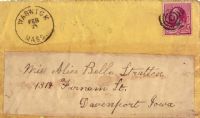 WARWICK
FEB
MASS.
Miss Alice Bella Stratton
1314 Farnam St.
Davenport Iowa